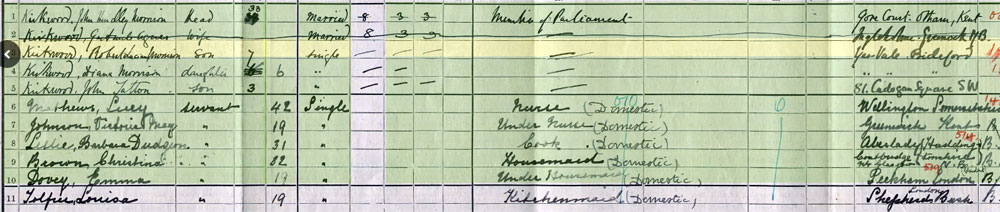 1 Kirkwood, John Hendley Morrison Head 33 Married 8 3 3 Member of Parliament Gore Court, Otham, Kent
2 Kirkwood, Gertrude Agnes Wife Married 8 3 3 N.B.
3 Kirkwood, Robert Morrison son 7 single Geo Vale Bideford
4 Kirkwood, Diana Morrison daughter 6 "
5 Kirkwood, John Tatton son 3 " 81. Cadogan Square SW
6 Mathews, Lucy servant 42 Single Nurse (Domestic) 010 0 Wellington Somersetshire
7 Johnson, Victoria May " 19 " Under Nurse (Domestic) Greenwich B.
8 Leslie, Barbara Dudgeon " 31 " Cook (Domestic) Aberlady Hadding 514 B.
9 Brown, Christina " 32 " Housemaid (Domestic) Coatbridge nr Glasgow N.B. 519 B.
10 Dovey, Emma " 19 " Under Housemaid (Domestic) Peckham London B.
11 Louisa " 19 " Kitchenmaid (Domestic) Shepherds Bush London B.